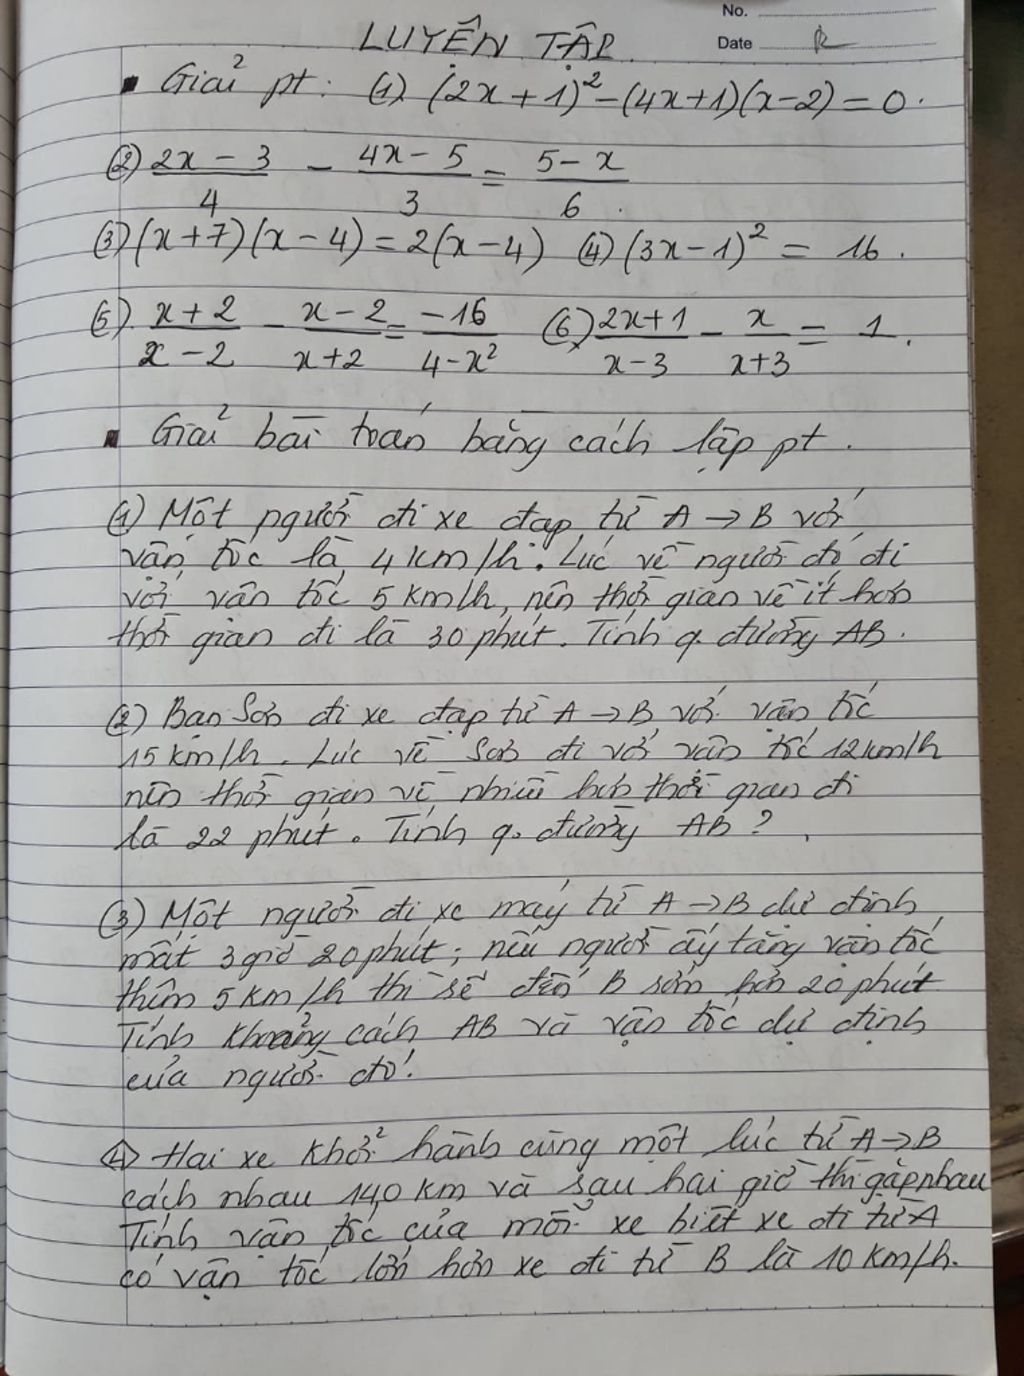 No.
Date
LUYỆN TẬP.
Giải pt: (1) (2x+1)² - (4x+1)(x-2) = 0.
(2) (2x-3)/4 - (4x-5)/3 = (5-x)/6.
(3) (x+7)(x-4) = 2(x-4) (4) (3x-1)² = 16.
(5) (x+2)/(x-2) - (x-2)/(x+2) = -16/(4-x²) (6) (2x+1)/(x-3) - x/(x+3) = 1.
Giải bài toán bằng cách lập pt.
(1) Một người đi xe đạp từ A → B với
vận tốc là 4 km/h. Lúc về người đó đi
với vận tốc 5 km/h, nên thời gian về ít hơn
thời gian đi là 30 phút. Tính q. đường AB.
(2) Bạn Sơn đi xe đạp từ A → B với vận tốc
15 km/h. Lúc về Sơn đi với vận tốc 12 km/h
nên thời gian về nhiều hơn thời gian đi
là 22 phút. Tính q. đường AB?
(3) Một người đi xe máy từ A → B dự định
mất 3 giờ 20 phút; nếu người ấy tăng vận tốc
thêm 5 km/h thì sẽ đến B sớm hơn 20 phút
Tính khoảng cách AB và vận tốc dự định
của người đó!
(4) Hai xe khởi hành cùng một lúc từ A → B
cách nhau 140 km và sau hai giờ thì gặp nhau
Tính vận tốc của mỗi xe biết xe đi từ A
có vận tốc lớn hơn xe đi từ B là 10 km/h.